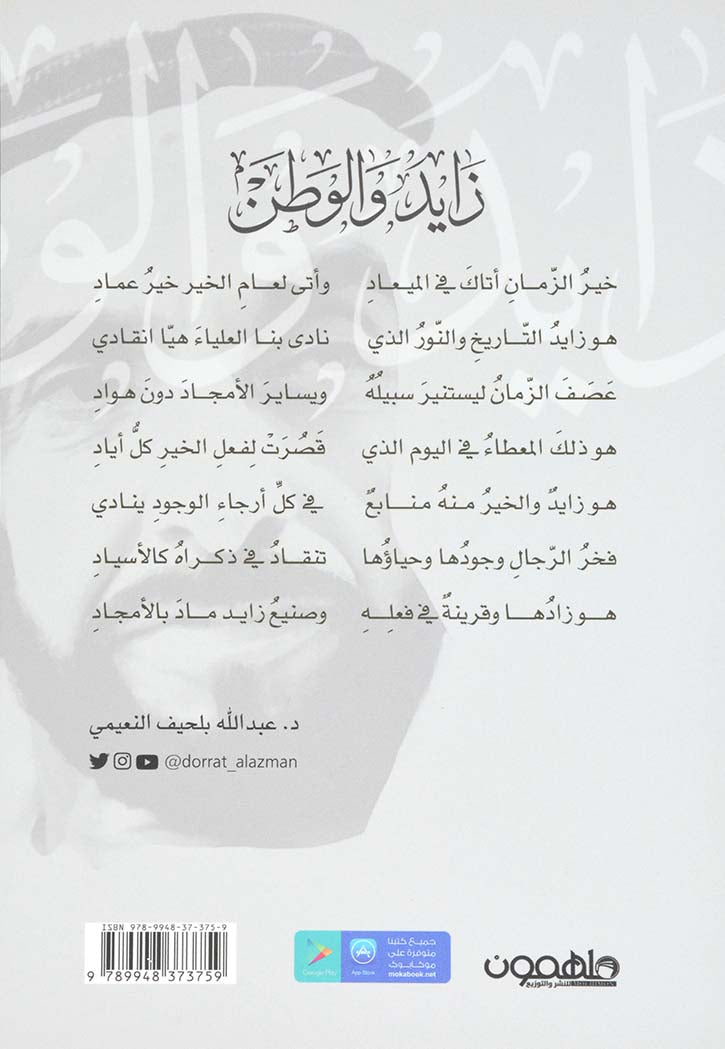 زايد والوطن
زَايِد وَالوَطَن
خيرُ الزّمـانِ أتاكَ في الميعـادِ وأتى لعـامِ الخير خيرُ عمـادِ
هـو زايدُ التّـاريخِ والنّورُ الذي نادى بنا العلياءَ هيّا انقادي
عَصَفَ الزّمانُ ليستنيرَ سبيلُهُ ويسايرَ الأمجـادَ دونَ هـوادِ
هو ذلكَ المعطاءُ في اليوم الذي قَصُرَتْ لِفعلِ الخيرِ كلُّ أيادِ
هـو زايدٌ والخيرُ منـهُ منـابعٌ في كلِّ أرجاءِ الوجودِ ينادي
فخرُ الرّجالِ وجودُها وحياؤُها تنقـادُ في ذكـراهُ كـالأسيـادِ
هـو زادُهـا وقرينةٌ في فعلِـهِ وصنيعُ زايـد مـادَ بـالأمجـادِ
د. عبدالله بلحيف النعيمي
@dorrat_alazman
ISBN 978-9948-37-375-9
9 789948 373759
Google Play
App Store
جميع كتبنا
متوفرة على
موكابوك
mokabook.net
ملهمون
للنشر والتوزيع
MOLHIMON